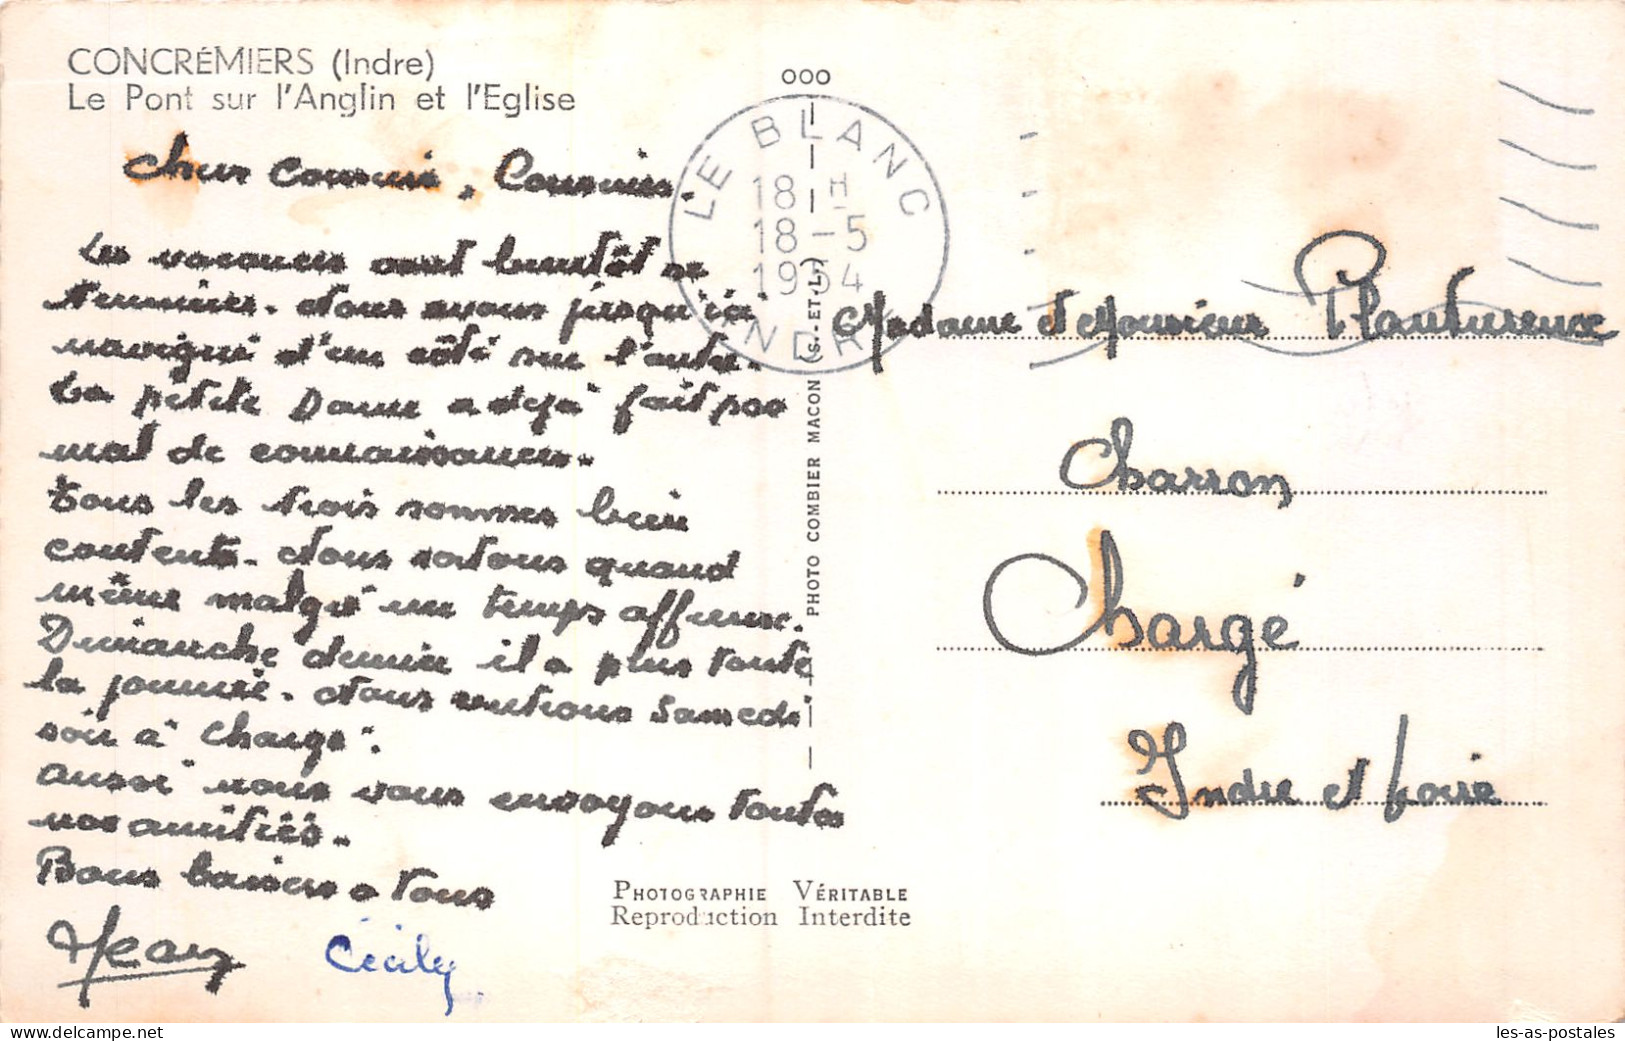 CONCRÉMIERS (Indre)
Le Pont sur l'Anglin et l'Eglise
Chers Cousin, Cousines.
Les vacances vont bientôt se
terminer. Nous avons jusqu'ici
navigué d'un côté sur l'autre.
La petite Dame a déjà fait pas
mal de connaissances.
Tous les trois sommes bien
contents. Nous sortons quand
même malgré un temps affreux.
Dimanche dernier il a plus toute
la journée. Nous rentrons Samedi
soir à Chargé.
Aussi nous vous envoyons toutes
nos amitiés.
Bons baisers a tous
Jean Cécily
OOO
LE BLANC
18 H
18-5
1954
INDRE
PHOTO COMBIER MACON (S.-ET-L.)
Madame et Monsieur Plantureux
Charron
Chargé
Indre et Loire
PHOTOGRAPHIE VÉRITABLE
Reproduction Interdite
les-as-postales